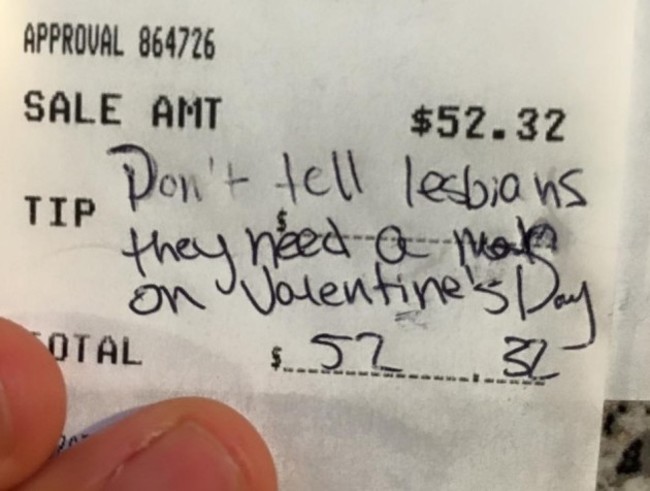 APPROVAL 864726
SALE AMT $52.32
Don't tell lesbians
TIP $
they need a man
on Valentine's Day
OTAL $ 52 . 32